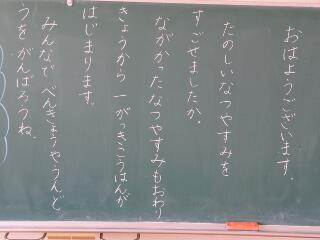 おはようございます。
たのしいなつやすみを
すごせましたか。
ながかったなつやすみもおわり
きょうから一がっきこうはんが
はじまります。
みんなでべんきょうやうんど
うをがんばろうね。